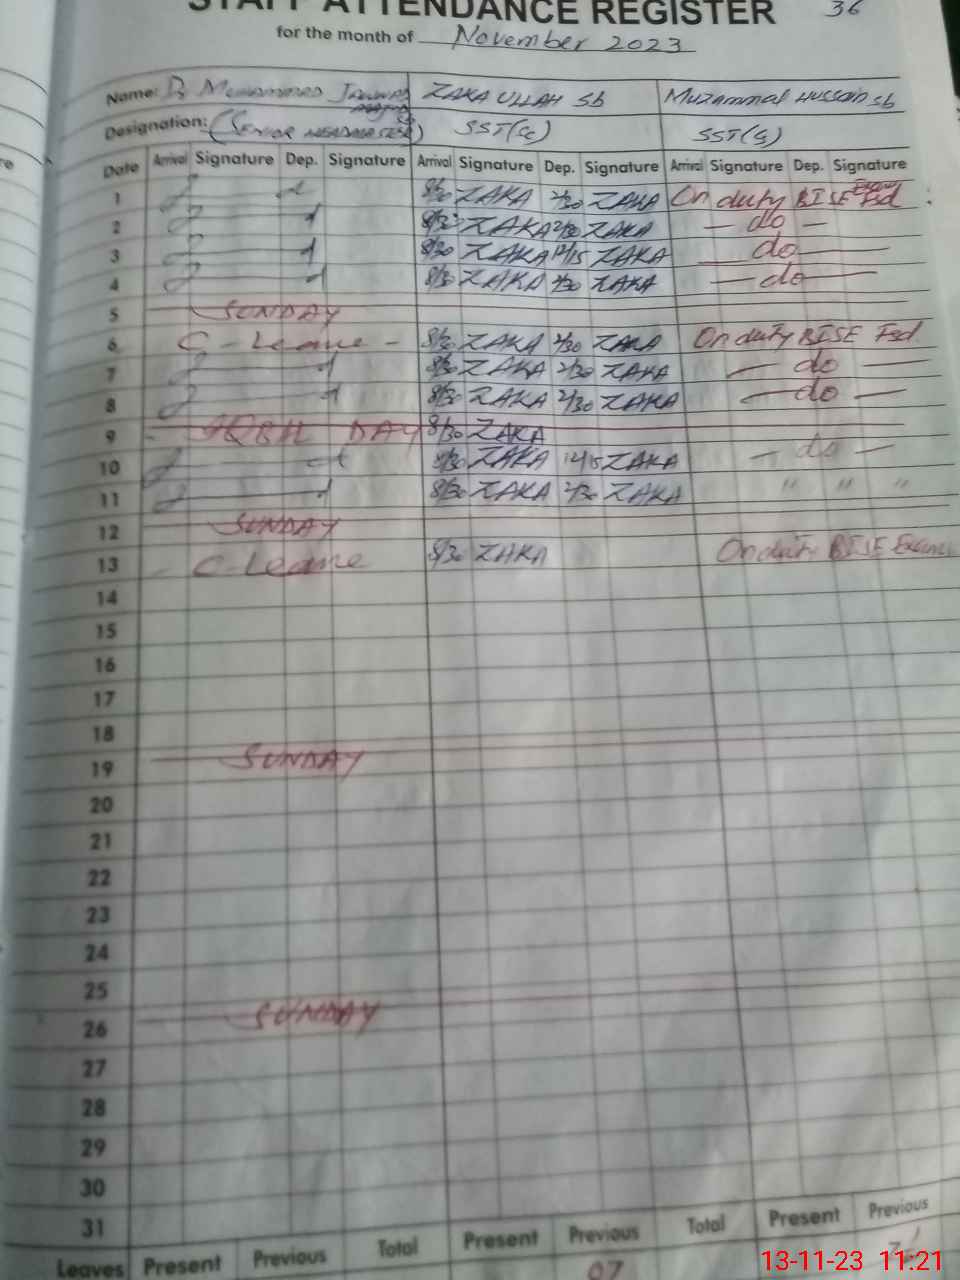 STAFF ATTENDANCE REGISTER 36
for the month of November 2023
Name: Dr Muhammad ZAKA ULLAH Sb Muzammal Hussain Sb
Designation: (SENIOR HEADMASTER) SST(Sc) SST(G)
Date Arrival Signature Dep. Signature Arrival Signature Dep. Signature Arrival Signature Dep. Signature
1 8/30 ZAKA 2/30 ZAKA On duty BISE Fsd
2 8/30 ZAKA 2/30 ZAKA — do —
3 8/30 ZAKA 12/15 ZAKA — do —
4 8/30 ZAKA 2/30 ZAKA — do —
5 SUNDAY
6 C-Leave - 8/30 ZAKA 2/30 ZAKA On duty BISE Fsd
7 8/30 ZAKA 2/30 ZAKA — do —
8 8/30 ZAKA 2/30 ZAKA — do —
9 IQBAL DAY 8/30 ZAKA
10 8/30 ZAKA 12/15 ZAKA — do —
11 8/30 ZAKA 2/30 ZAKA " " "
12 SUNDAY
13 C-Leave 8/30 ZAKA On duty BISE
14
15
16
17
18
19 SUNDAY
20
21
22
23
24
25
26 SUNDAY
27
28
29
30
31
Leaves Present Previous Total Present Previous Total Present Previous
07
13-11-23 11:21